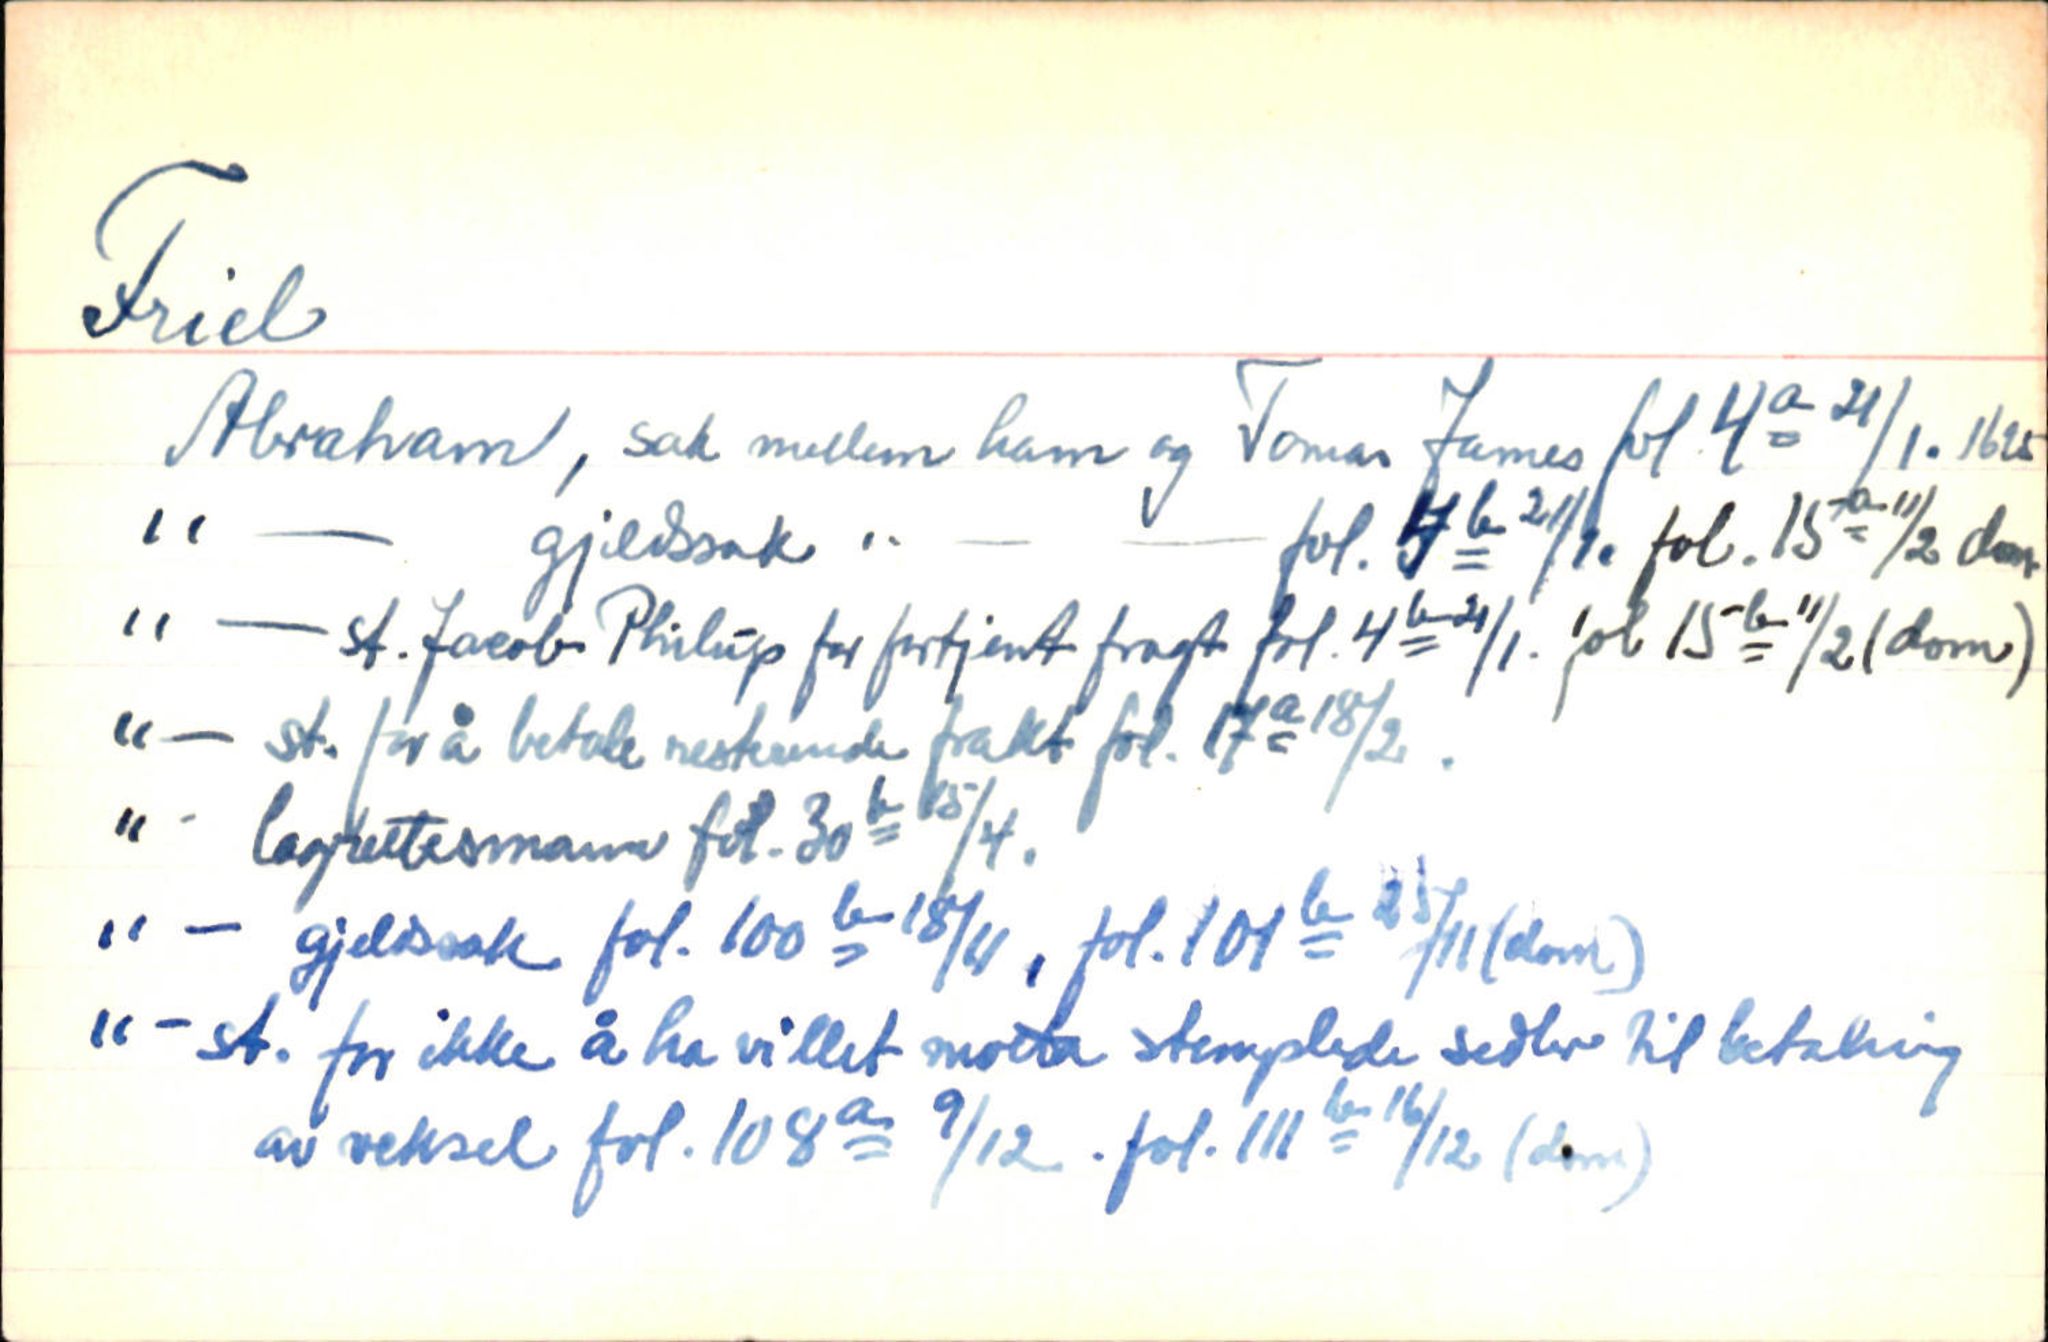 Friel
Abraham, sak mellem ham og Tomas James fol. 4a 21/1. 1695
" — gjeldssak " — — fol. 4b 21/1. fol. 15a 11/2 dom
" — st. Jacob Philūp for fortjent fragt fol. 4b 21/1. fol 15b 11/2 (dom)
" — st. for å betale resterende frakt fol. 17a 18/2.
" - lagrettesmann fol. 30b 15/4.
" — gjeldssak fol. 100b 18/11, fol. 101b 25/11 (dom)
" — st. for ikke å ha villet motta stemplede sedler til betaling
av veksel fol. 108a 9/12. fol. 111b 16/12 (dom)